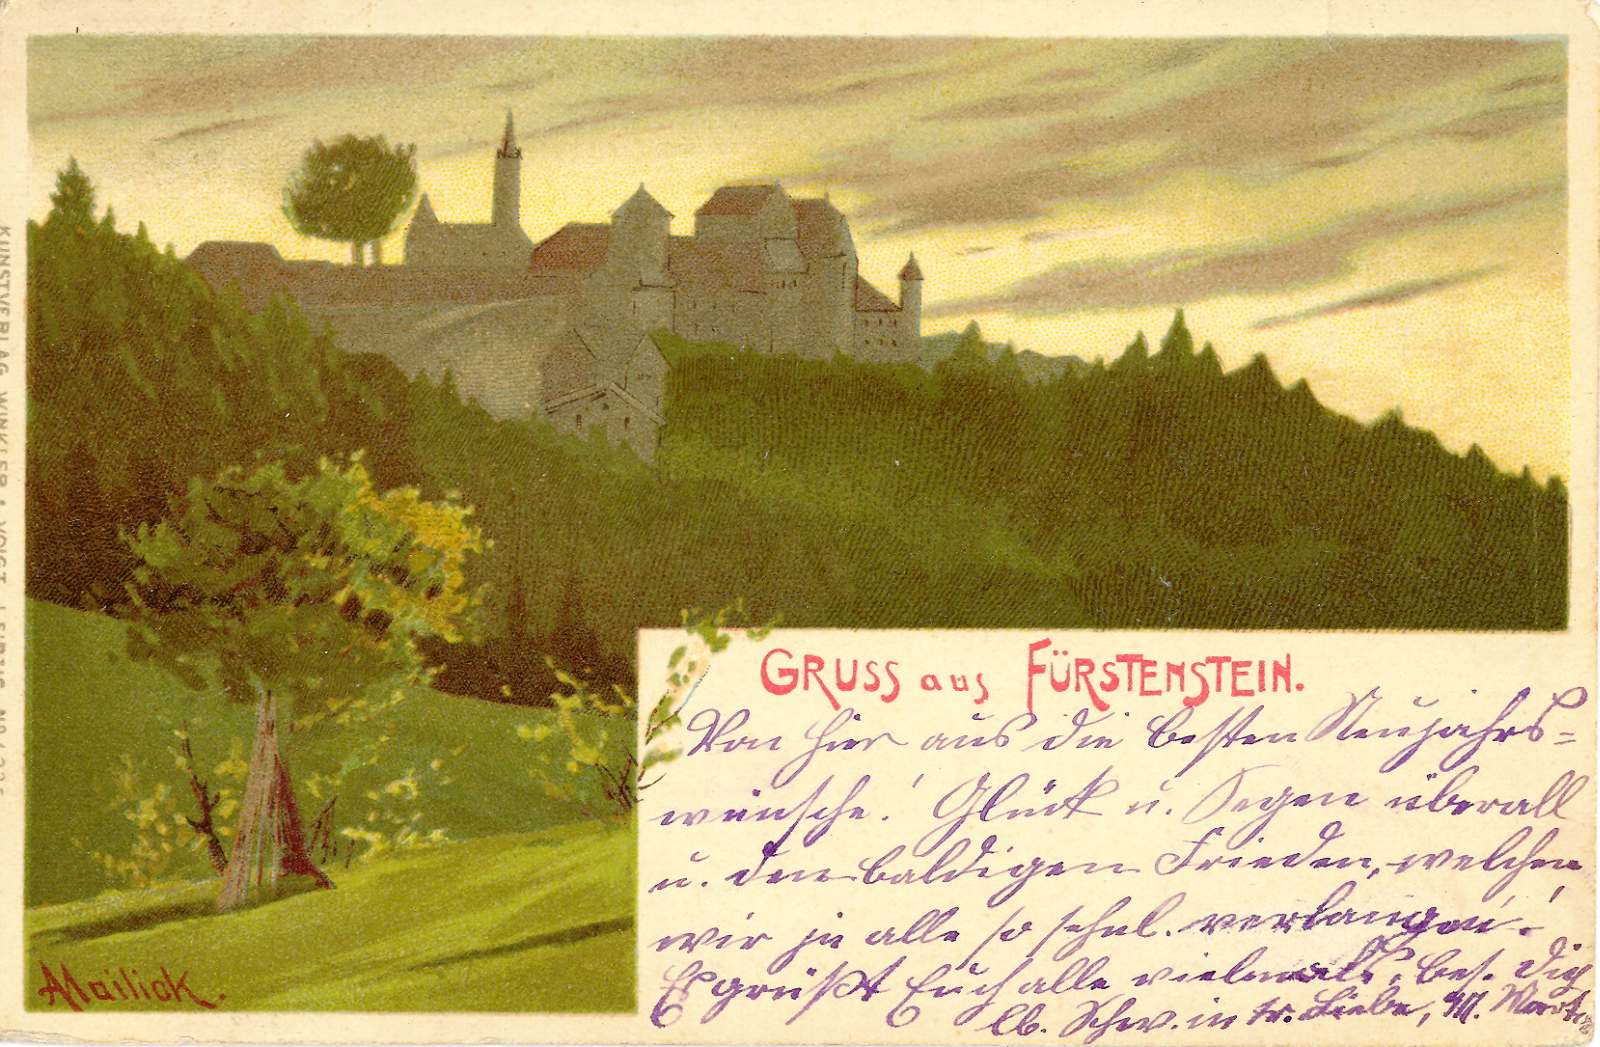 GRUSS aus FÜRSTENSTEIN.
Von hier aus die besten Neujahrs=
wünsche! Glück u. Segen überall
u. den baldigen Frieden, welchen
wir ja alle so sehnl. verlangen!
Es grüßt Euch alle vielmals, bes. dich
lb. Schw. in tr. Liebe, M.
AMailick.
KUNSTVERLAG WINKLER & VOIGT, LEIPZIG